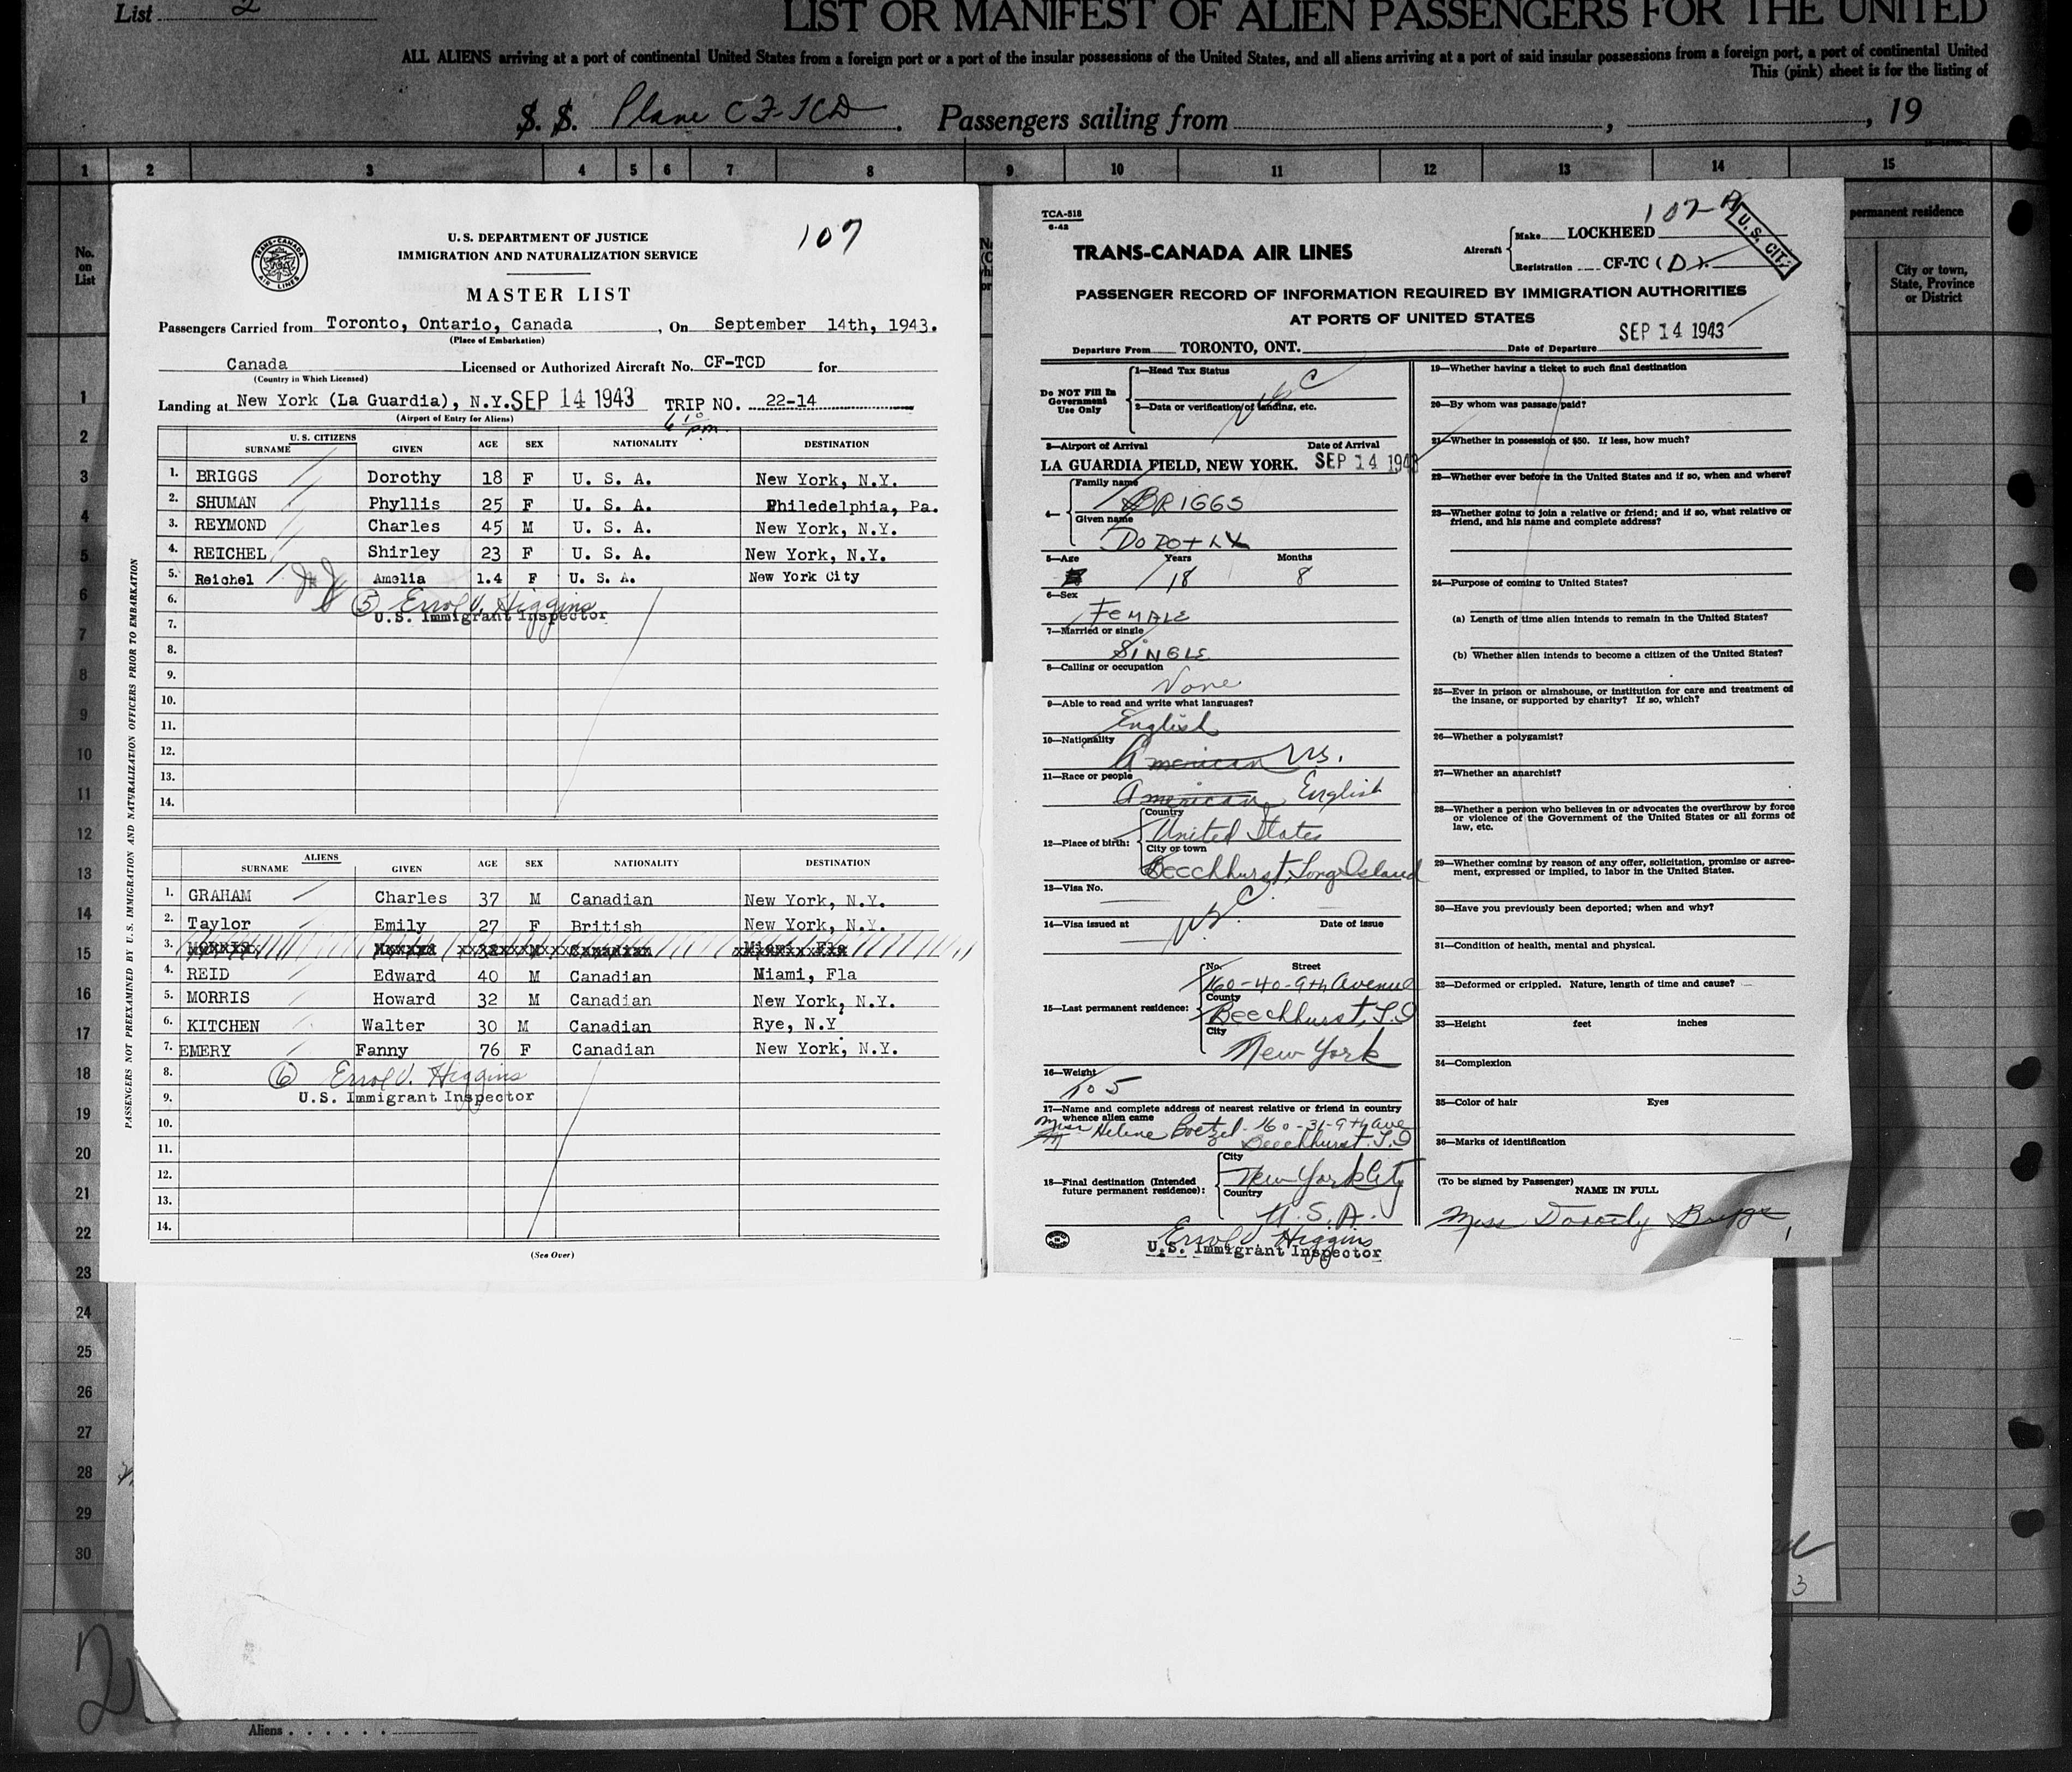 List 2
LIST OR MANIFEST OF ALIEN PASSENGERS FOR THE UNITED
ALL ALIENS arriving at a port of continental United States from a foreign port or a port of the insular possessions of the United States, and all aliens arriving at a port of said insular possessions from a foreign port, a port of continental United
This (pink) sheet is for the listing of
S. S. Plane CF-TCD. Passengers sailing from , , 19
1 2 3 4 5 6 7 8 9 10 11 12 13 14 15
No. on List
permanent residence
City or town, State, Province or District
1
2
3
4
5
6
7
8
9
10
11
12
13
14
15
16
17
18
19
20
21
22
23
24
25
26
27
28
29
30
107
TRANS-CANADA AIR LINES
U. S. DEPARTMENT OF JUSTICE
IMMIGRATION AND NATURALIZATION SERVICE
MASTER LIST
Passengers Carried from Toronto, Ontario, Canada, On September 14th, 1943.
(Place of Embarkation)
Canada Licensed or Authorized Aircraft No. CF-TCD for
(Country in Which Licensed)
Landing at New York (La Guardia), N.Y. SEP 14 1943 TRIP NO. 22-14
(Airport of Entry for Aliens)
6 10 pm
PASSENGERS NOT PREEXAMINED BY U. S. IMMIGRATION AND NATURALIZATION OFFICERS PRIOR TO EMBARKATION
U. S. CITIZENS
SURNAME GIVEN AGE SEX NATIONALITY DESTINATION
1. BRIGGS Dorothy 18 F U. S. A. New York, N.Y.
2. SHUMAN Phyllis 25 F U. S. A. Philedelphia, Pa.
3. REYMOND Charles 45 M U. S. A. New York, N.Y.
4. REICHEL Shirley 23 F U. S. A. New York, N.Y.
5. Reichel Amelia 1.4 F U. S. A. New York City
6. (5) Errol V. Higgins
U.S. Immigrant Inspector
7.
8.
9.
10.
11.
12.
13.
14.
ALIENS
SURNAME GIVEN AGE SEX NATIONALITY DESTINATION
1. GRAHAM Charles 37 M Canadian New York, N.Y.
2. Taylor Emily 27 F British New York, N.Y.
3. MORRIS 32 M Canadian Miami, Fla
4. REID Edward 40 M Canadian Miami, Fla
5. MORRIS Howard 32 M Canadian New York, N.Y.
6. KITCHEN Walter 30 M Canadian Rye, N.Y
7. EMERY Fanny 76 F Canadian New York, N.Y.
8. (6) Errol V. Higgins
9. U.S. Immigrant Inspector
10.
11.
12.
13.
14.
(See Over)
TCA-518
6-42
107-A
U. S. CIT.
TRANS-CANADA AIR LINES
Aircraft Make LOCKHEED
Registration CF-TC (D).
PASSENGER RECORD OF INFORMATION REQUIRED BY IMMIGRATION AUTHORITIES
AT PORTS OF UNITED STATES
SEP 14 1943
Departure From TORONTO, ONT. Date of Departure
Do NOT Fill In Government Use Only
1—Head Tax Status
USC
2—Data or verification of landing, etc.
3—Airport of Arrival Date of Arrival
LA GUARDIA FIELD, NEW YORK. SEP 14 1943
4— Family name
BRIGGS
Given name
DOROTHY
5—Age Years Months
18 8
6—Sex
FEMALE
7—Married or single
SINGLE
8—Calling or occupation
None
9—Able to read and write what languages?
English
10—Nationality
American U.S.
11—Race or people
American English
12—Place of birth: Country
United States
City or town
Beechhurst, Long Island
13—Visa No.
14—Visa issued at Date of issue
USC
15—Last permanent residence: No. Street
160-40-9th Avenue
County
Beechhurst, L.I
City
New York
16—Weight
105
17—Name and complete address of nearest relative or friend in country whence alien came
Miss Helene Boetzel - 160-31-9th Ave
Beechhurst. L.I
18—Final destination (Intended future permanent residence): City
New York City
Country
U. S. A.
Errol V. Higgins
U.S. Immigrant Inspector
19—Whether having a ticket to such final destination
20—By whom was passage paid?
21—Whether in possession of $50. If less, how much?
22—Whether ever before in the United States and if so, when and where?
23—Whether going to join a relative or friend; and if so, what relative or friend, and his name and complete address?
24—Purpose of coming to United States?
(a) Length of time alien intends to remain in the United States?
(b) Whether alien intends to become a citizen of the United States?
25—Ever in prison or almshouse, or institution for care and treatment of the insane, or supported by charity? If so, which?
26—Whether a polygamist?
27—Whether an anarchist?
28—Whether a person who believes in or advocates the overthrow by force or violence of the Government of the United States or all forms of law, etc.
29—Whether coming by reason of any offer, solicitation, promise or agreement, expressed or implied, to labor in the United States.
30—Have you previously been deported; when and why?
31—Condition of health, mental and physical.
32—Deformed or crippled. Nature, length of time and cause?
33—Height feet inches
34—Complexion
35—Color of hair Eyes
36—Marks of identification
(To be signed by Passenger)
NAME IN FULL
Miss Dorothy Briggs
3
2
Aliens